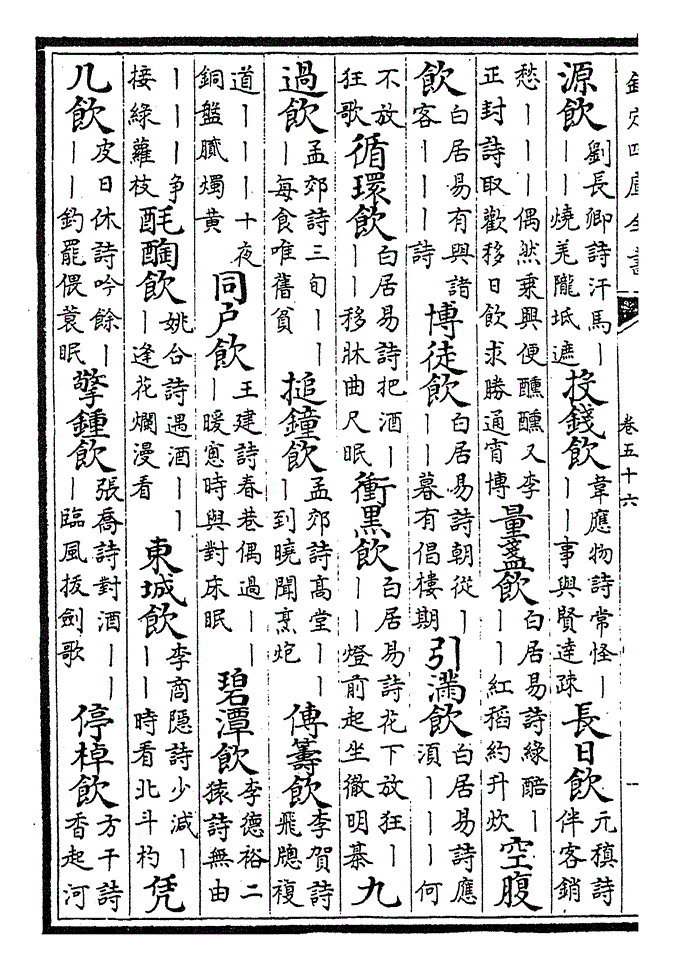 欽定四庫全書 卷五十六
源飲劉長卿詩汗馬丨丨丨燒羌隴坻遮投錢飲韋應物詩常怪丨丨丨事與賢達疎長日飲元稹詩伴客銷
愁丨丨丨偶然乘興便醺醺又李正封詩取歡移日飲求勝通宵博量盞飲白居易詩緣醅丨丨丨紅稻約升炊空腹
飲白居易有興諸客丨丨丨詩博徒飲白居易詩朝從丨丨丨暮有倡樓期引滿飲白居易詩應須丨丨丨何
不放狂歌循環飲白居易詩把酒丨丨丨移牀曲尺眠衝黑飲白居易詩花下放狂丨丨丨燈前起坐徹明棊九
過飲孟郊詩三旬丨丨丨每食唯舊貧搥鐘飲孟郊詩高堂丨丨丨到曉聞烹炮傳籌飲李賀詩飛牕複
道丨丨丨十夜銅盤膩燭黄同戶飲王建詩春巷偶過丨丨丨暖窻時與對床眠碧潭飲李德裕二猿詩無由
丨丨丨爭接綠蘿枝酕醄飲姚合詩遇酒丨丨丨逢花爛漫看東城飲李商隱詩少減丨丨丨時看北斗杓凭
几飲皮日休詩吟餘丨丨丨釣罷偎蓑眠擎鍾飲張喬詩對酒丨丨丨臨風拔劍歌停棹飲方干詩香起河